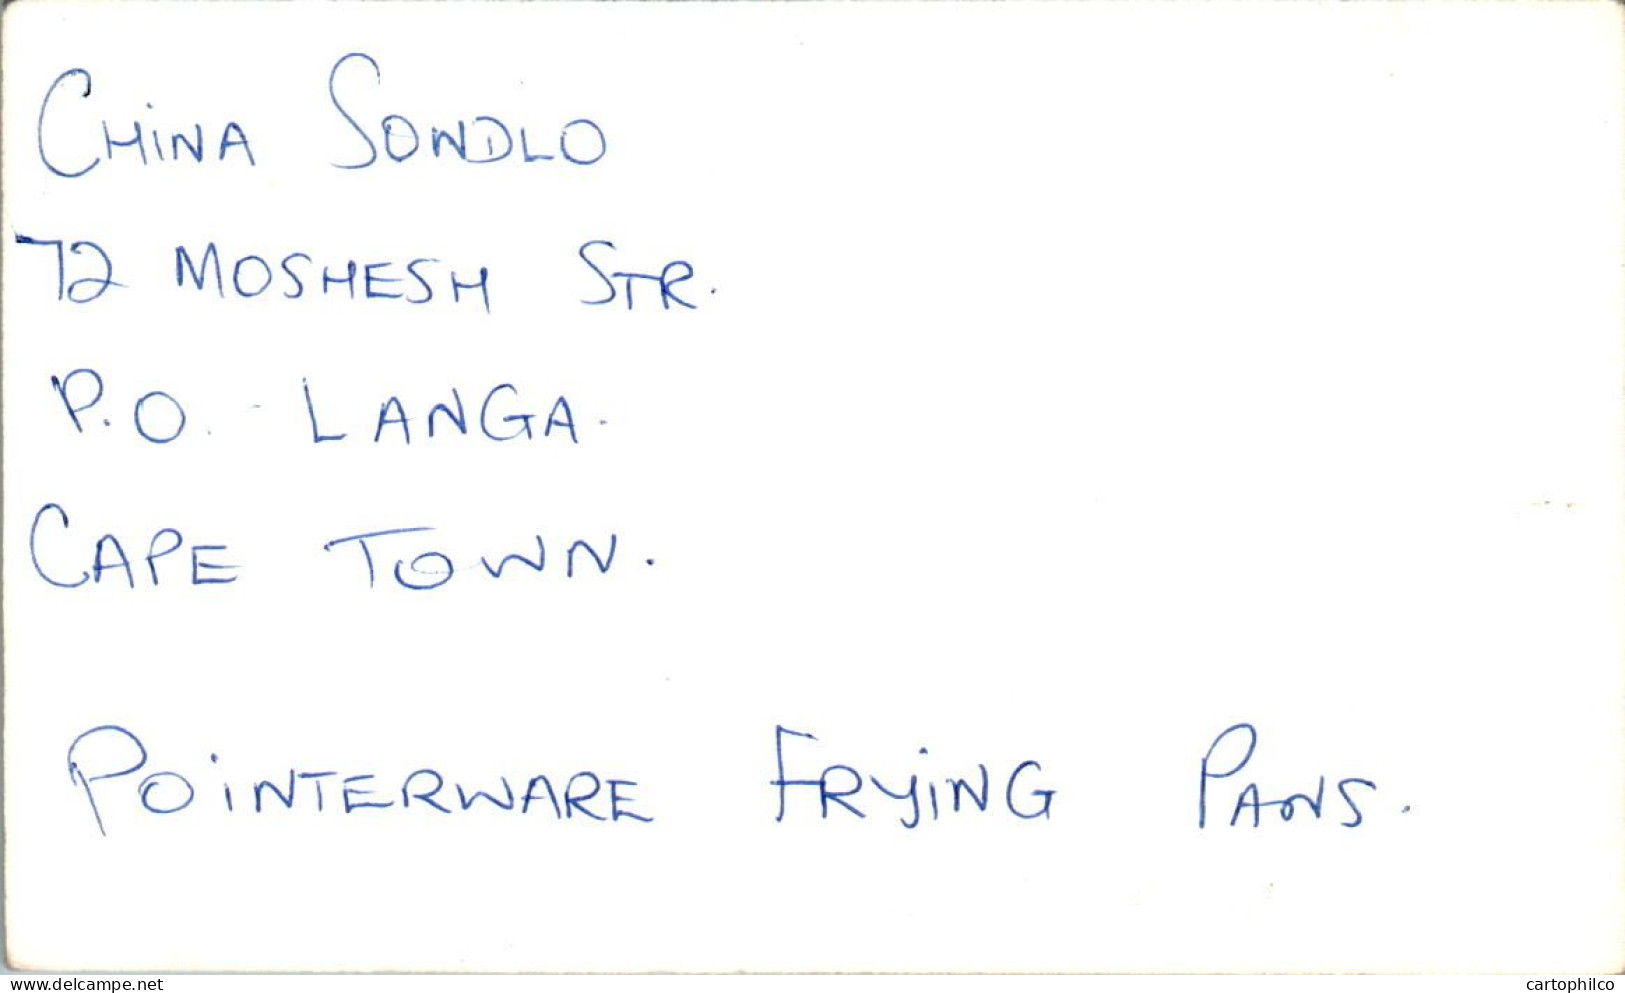 CHINA SONDLO
72 MOSHESH STR.
P.O. - LANGA.
CAPE TOWN.
POINTERWARE FRYING PANS.
www.delcampe.net
cartophilco